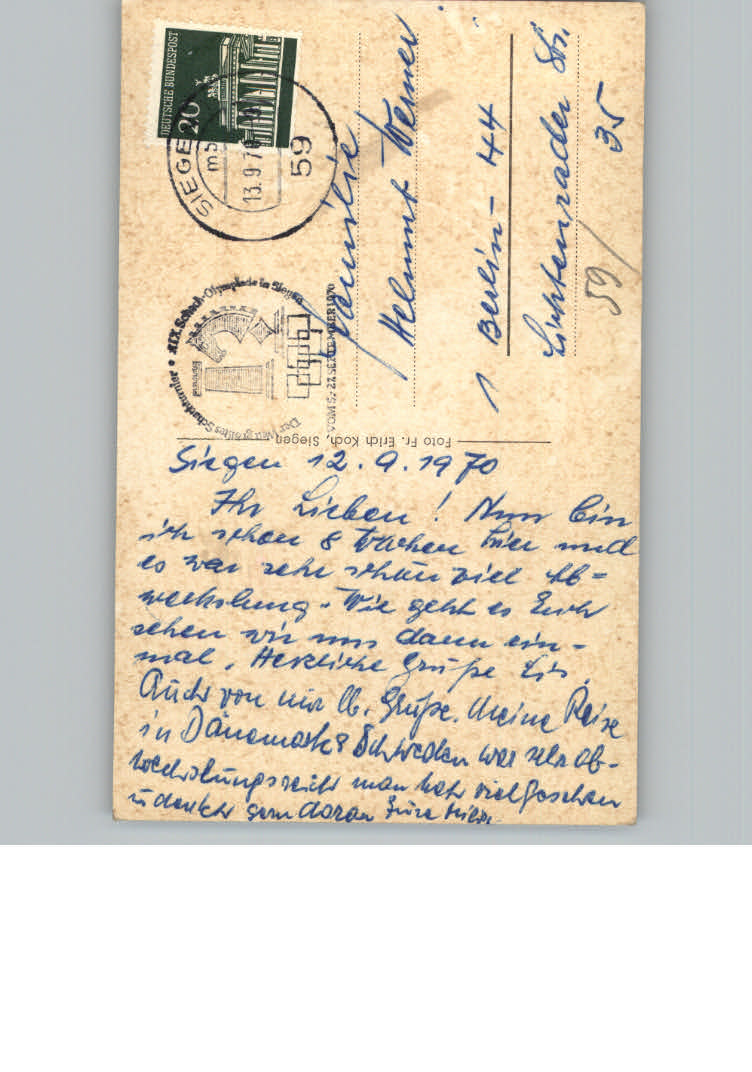 DEUTSCHE BUNDESPOST
20
SIEGEN
13.9.70
59
XIX. Schach-Olympiade in Siegen
Der Welt größtes Schachturnier
VOM 5.-27. SEPTEMBER 1970
Familie
Helmut Werner
1 Berlin - 44
Lichtenrader Str.
35
59/
Foto Fr. Erich Koch, Siegen
Siegen 12.9.1970
Ihr Lieben! Nun bin
ich schon 8 Wochen hier und
es war sehr schön viel Ab=
wechslung. Wie geht es Euch
sehen wir uns dann ein=
mal. Herzliche Grüße
Auch von mir lb. Grüße. Meine Reise
in Dänemark & Schweden war sehr ab-
wechslungsreich man hat viel gesehen
u denkt gern daran Eure